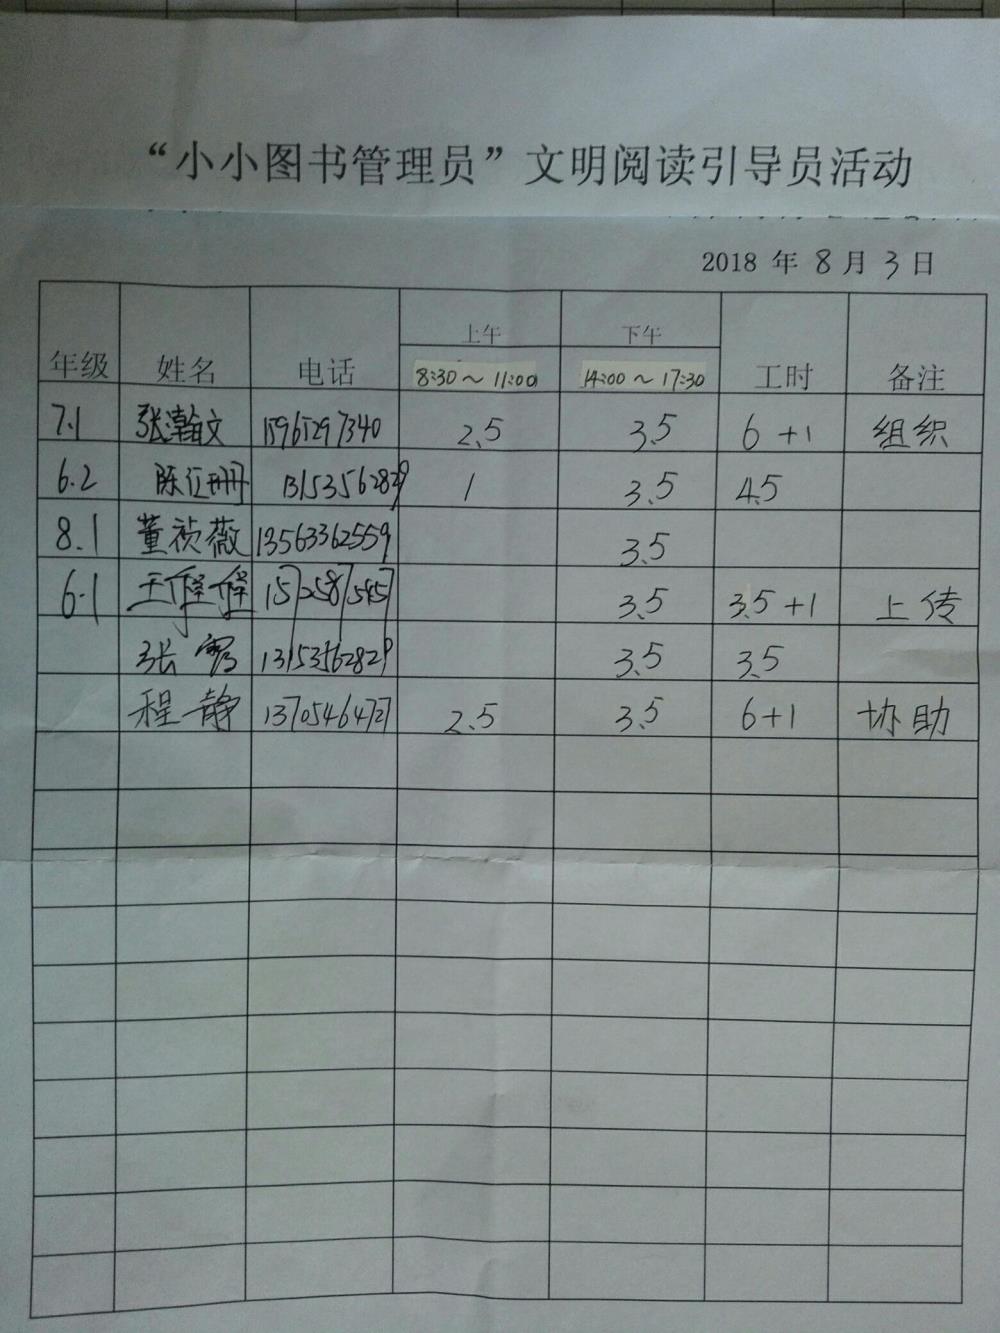 “小小图书管理员”文明阅读引导员活动
2018 年 8 月 3 日
年级 姓名 电话 上午 8:30～11:00 下午 14:00～17:30 工时 备注
7.1 张瀚文 15965297340 2.5 3.5 6+1 组织
6.2 陈 13153562829 1 3.5 4.5
8.1 董祯薇 13563362559 3.5
6.1 王 15725875457 3.5 3.5+1 上传
张霞 13153562829 3.5 3.5
程静 13705464727 2.5 3.5 6+1 协助